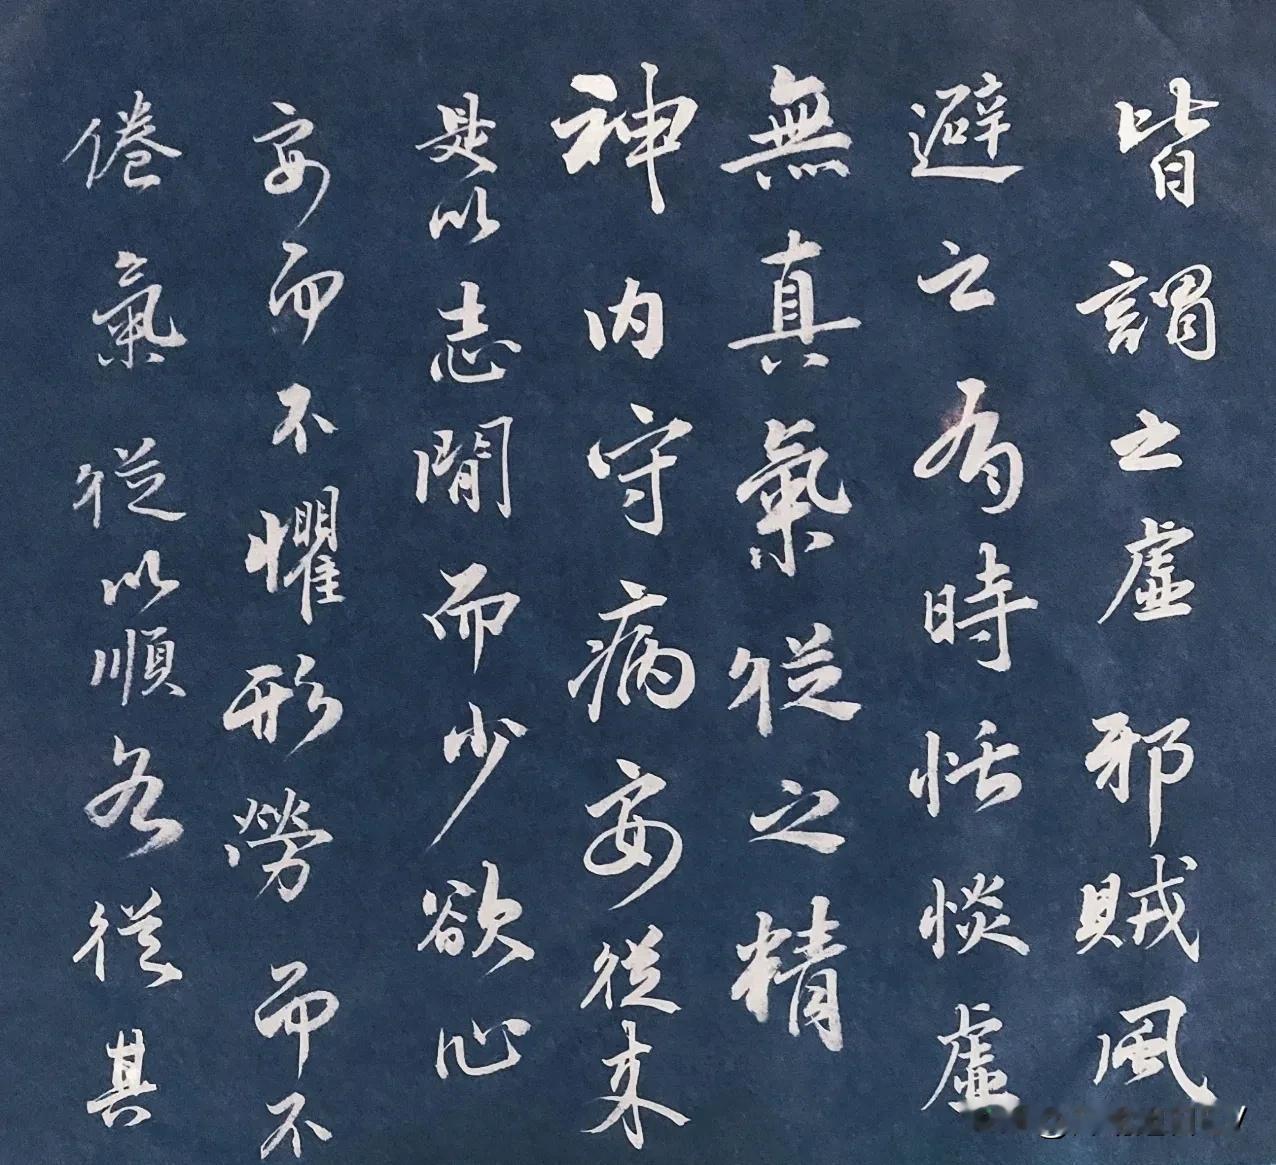 皆謂之虛邪賊風
避之有時恬惔虛
無真氣從之精
神內守病安從来
是以志閒而少欲心
安而不懼形勞而不
倦氣從以順各從其